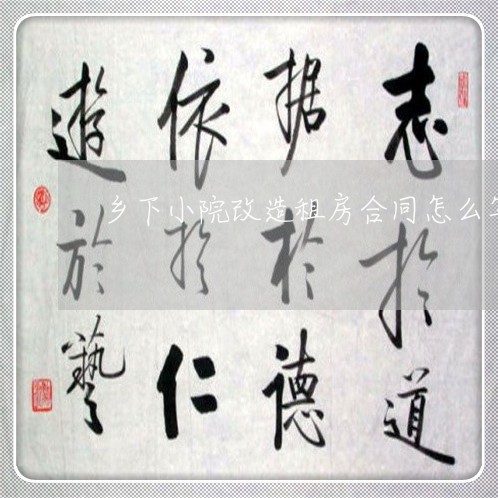 志於道
据於德
依於仁
遊於藝
乡下小院改造租房合同怎么